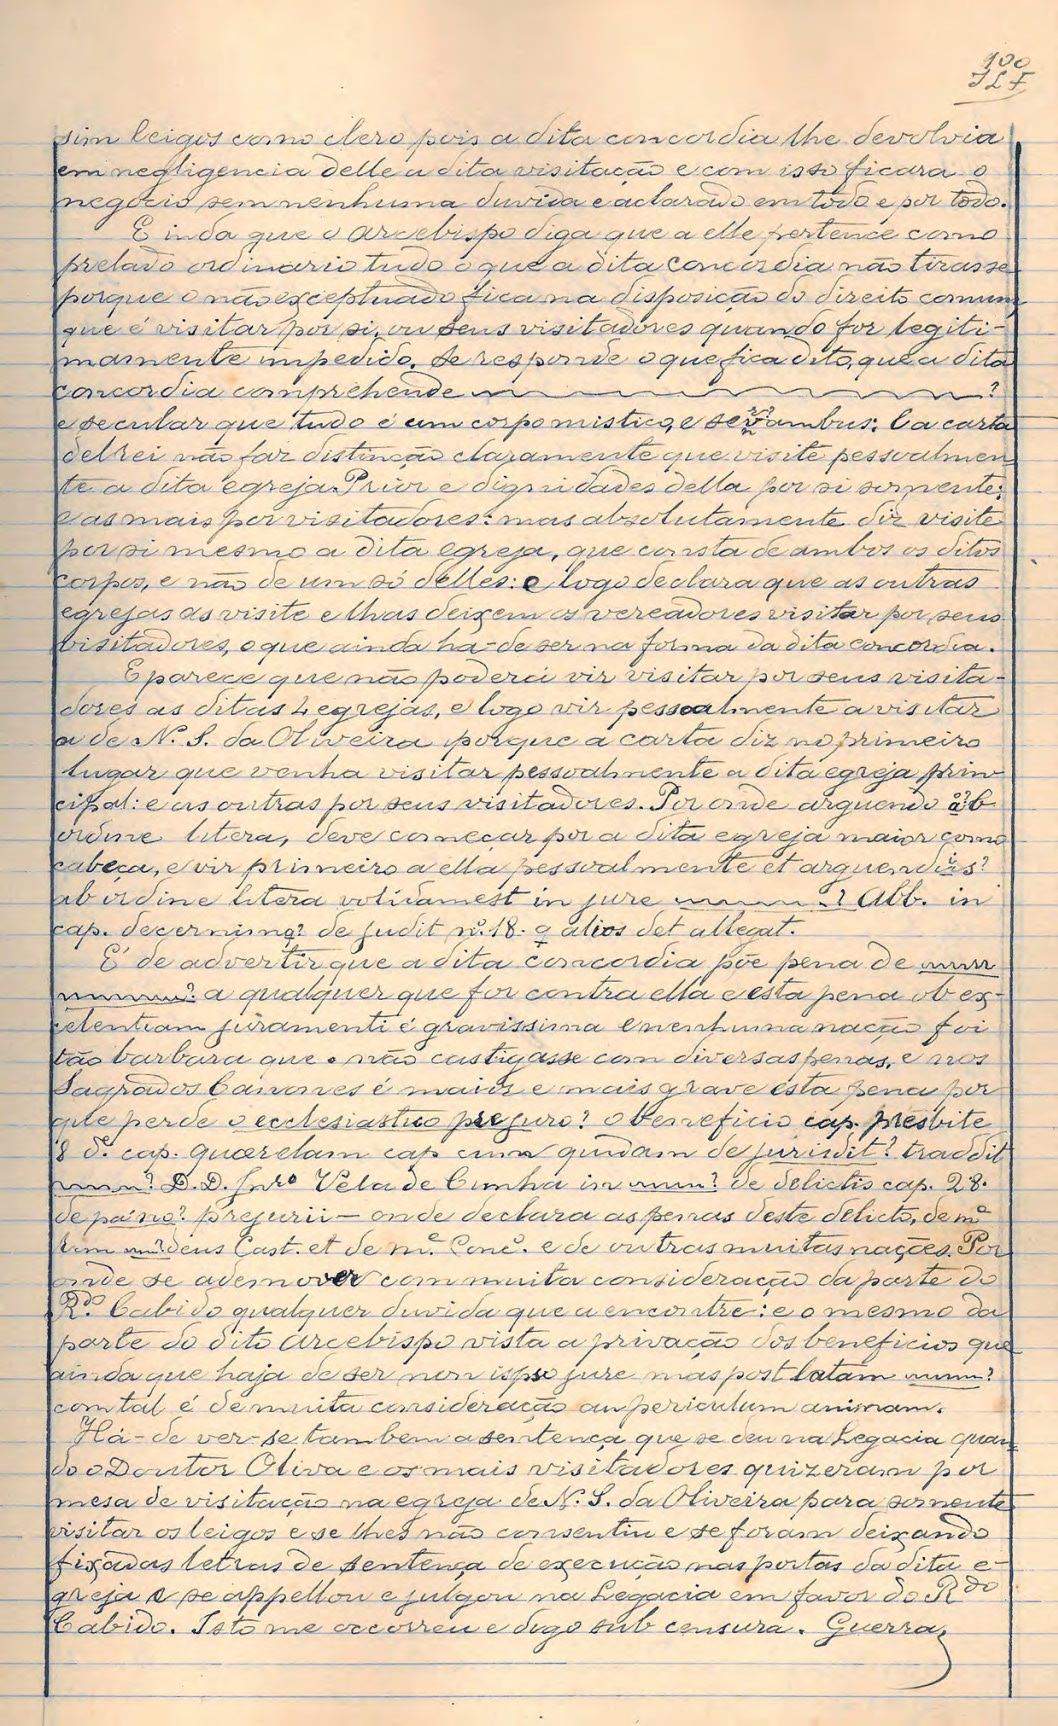 100
JLF
sim leigos como clero pois a dita concordia lhe devolvia
em negligencia delle a dita visitação e com isso ficara o
negocio sem nenhuma duvida e aclarado em todo e por todo.
E inda que o arcebispo diga que a elle pertence como
prelado ordinario tudo o que a dita concordia não tirasse
porque o não exceptuado fica na disposição do direito comum,
que é visitar por si, ou seus visitadores quando for legiti-
mamente impedido, se responde o que fica dito, que a dita
concordia comprehende ?
e secular que tudo é um corpo mistico, e ambus: C a carta
delrei não faz distinção claramente que visite pessoalmen
te a dita egreja Prior e dignidades della por si somente;
e as mais por visitadores: mas absolutamente diz visite
por si mesmo a dita egreja, que consta de ambos os ditos
corpos, e não de um só delles: e logo declara que as outras
egrejas as visite e lhas deixem os vereadores visitar por seus
visitadores, o que ainda há-de ser na forma da dita concordia.
E parece que não poderá vir visitar por seus visita-
dores as ditas 4 egrejas, e logo vir pessoalmente a visitar
a de N. S. da Oliveira porque a carta diz no primeiro
lugar que venha visitar pessoalmente a dita egreja prin-
cipal: e as outras por seus visitadores. Por onde arguendo ab
ordine litera, deve começar por a dita egreja maior como
cabeça, e vir primeiro a ella pessoalmente et arguendus?
ab ordine litera in jure ? Abb. in
cap. decernimq? de judit nº 18. q alios det allegat.
É de advertir que a dita concordia põe pena de
? a qualquer que for contra ella e esta pena ob ex-
celentiam juramenti é gravissima e nenhuma nação foi
tão barbara que o não castigasse com diversas penas, e nos
Sagrados Canones é maior e mais grave esta pena por
que perde o ecclesiastico prejuro? o beneficio cap. presbite
8 d. cap. quærelam cap cum quidam de jurisdit? traddit
? D. D. Jnro Vela de Cunha in ? de delictis cap. 28.
de pano? prejurii — onde declara as penas deste delicto, de mº
? deus Cast. et de mº. Conc. e de outras muitas nações. Por
onde se ademover com muita consideração da parte do
Rdo. Cabido qualquer duvida que a encontre: e o mesmo da
parte do dito arcebispo vista a privação dos beneficios que
ainda que haja de ser non ispso jure mas post latam ?
com tal é de muita consideração an periculum animam.
Há-de ver-se tambem a sentença que se deu na Legacia quan
do o Doutor Oliva e os mais visitadores quizeram por
mesa de visitação na egreja de N. S. da Oliveira para somente
visitar os leigos e se lhes não consentiu e se foram deixando
fixadas letras de sentença de execução nas portas da dita e-
greja e se appellou e julgou na Legacia em favor do Rdo
Cabido. Isto me occorreu e digo sub censura. Guerra,